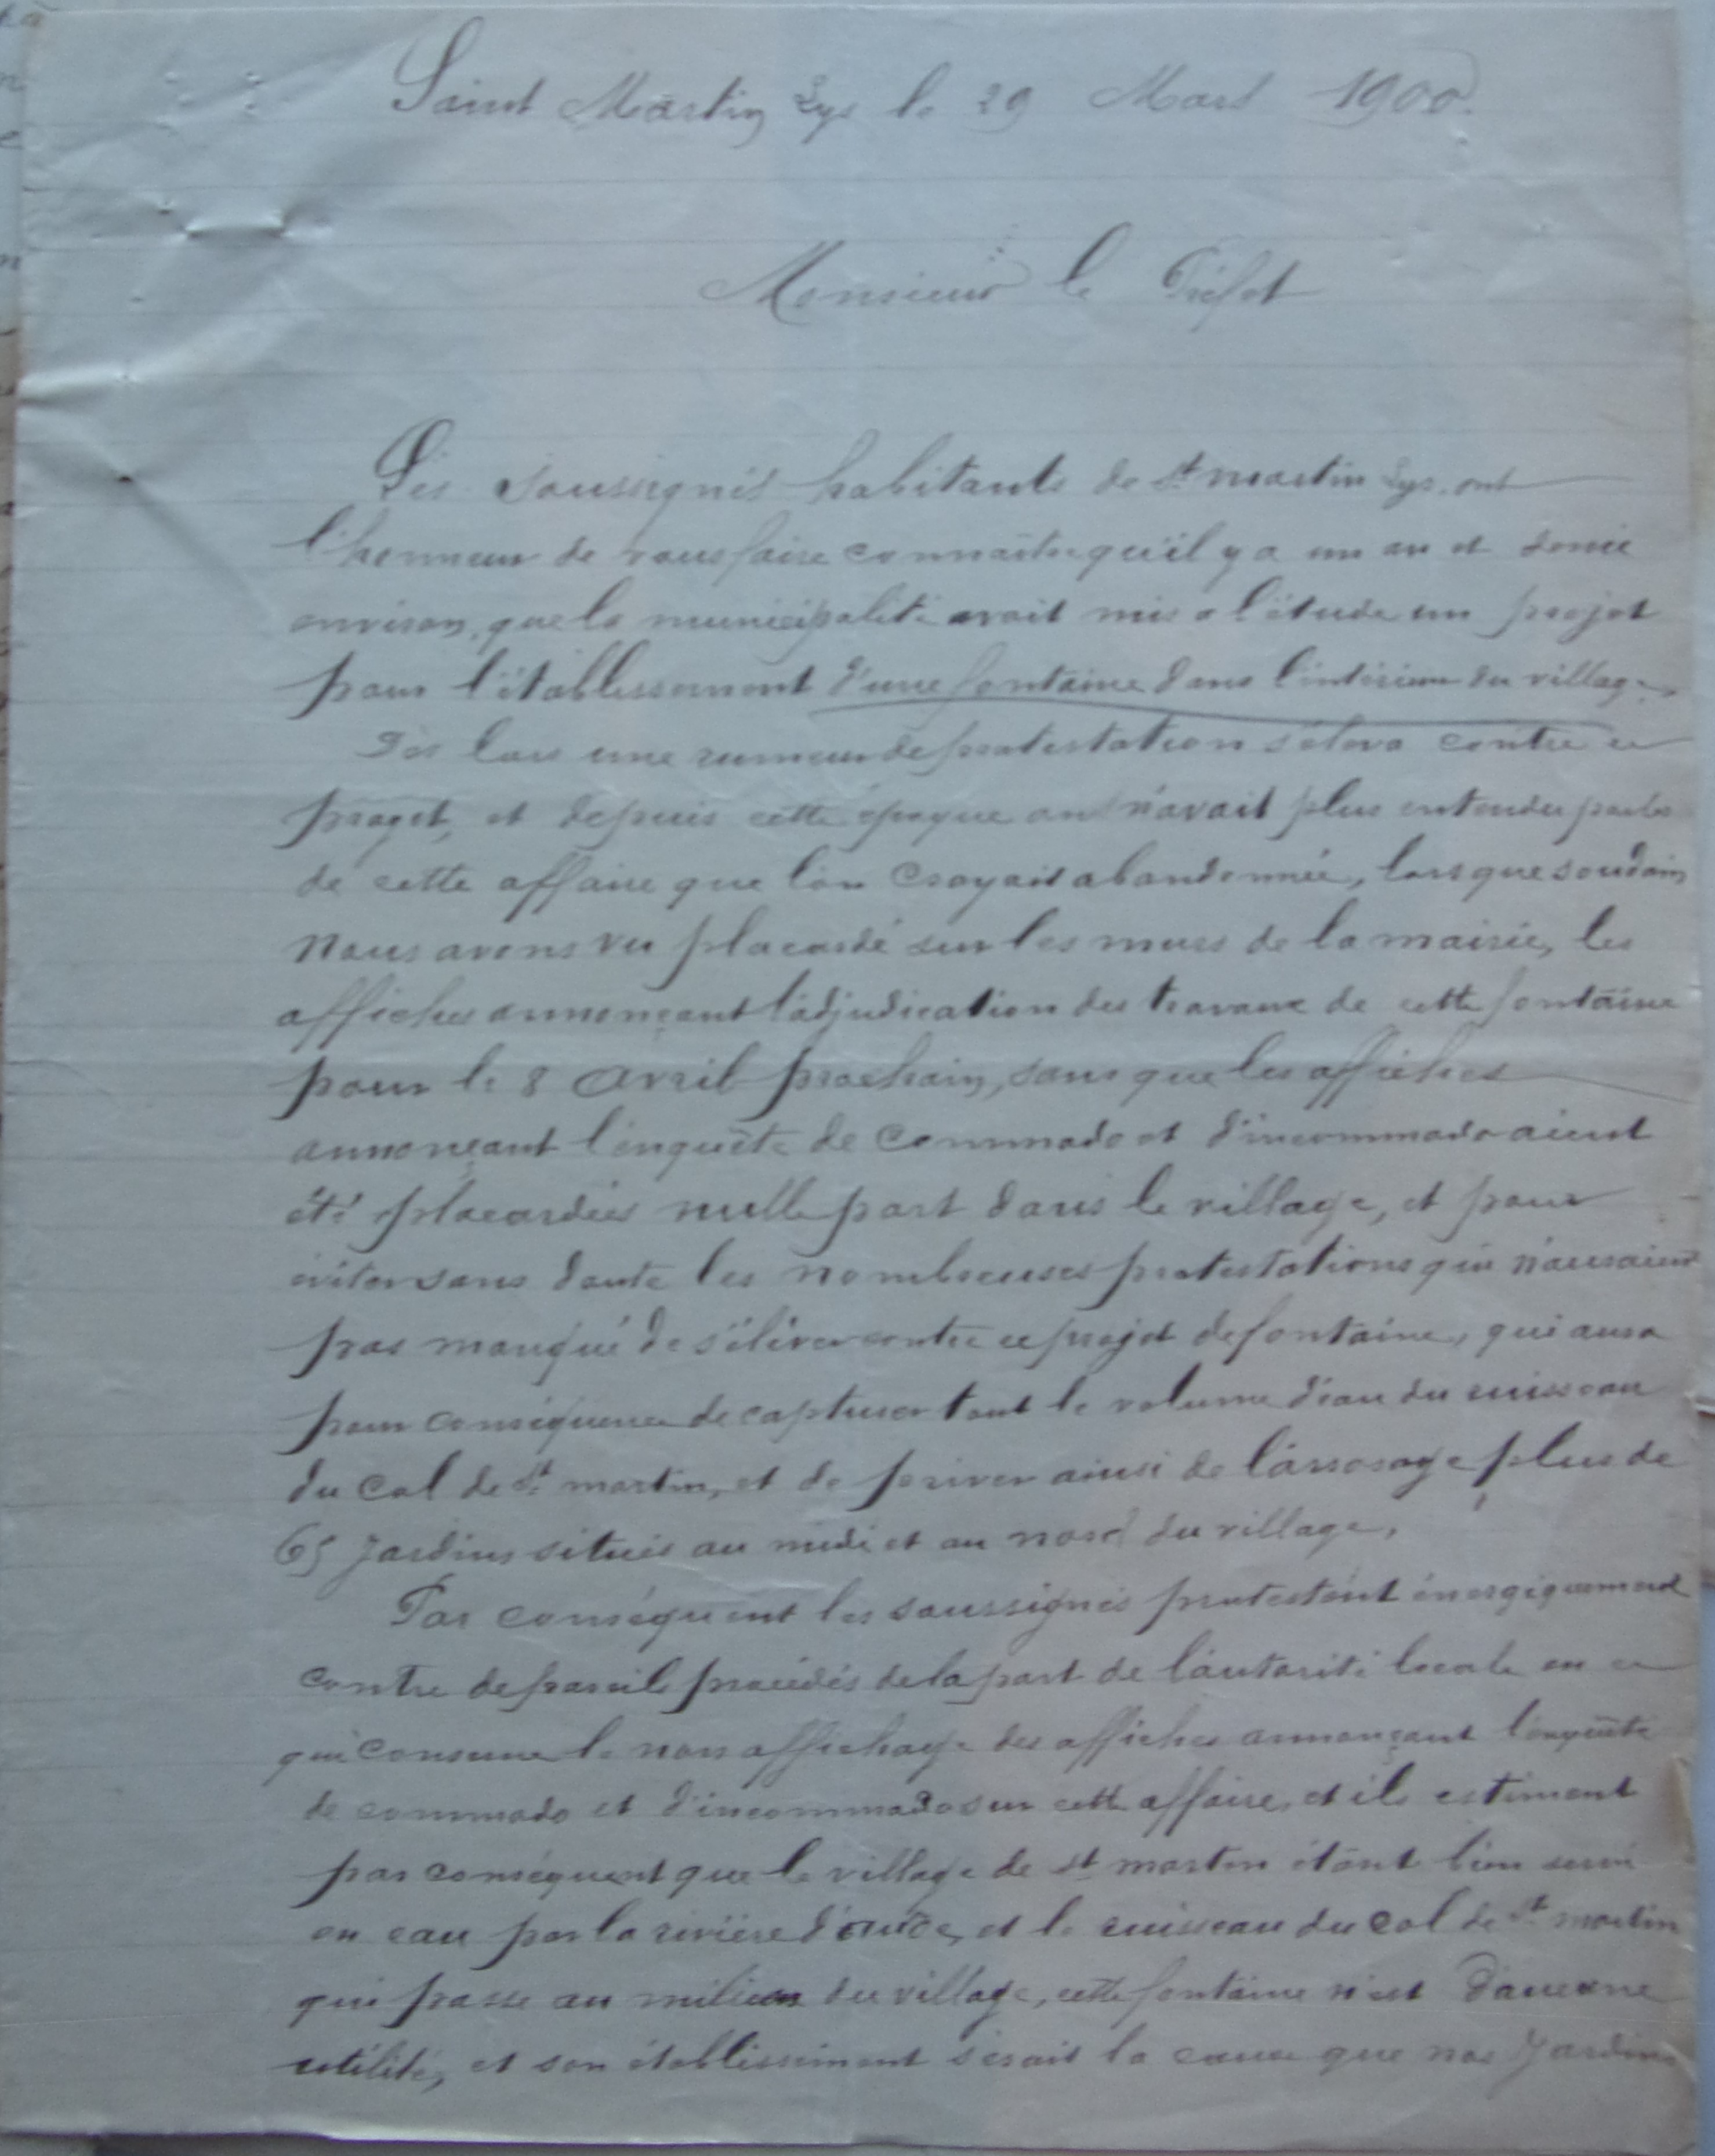 Saint Martin Lys le 29 Mars 1900.
Monsieur le Préfet
Les soussignés habitants de St martin Lys, ont
l'honneur de vous faire connaitre qu'il y a un an et demie
environ, que la municipalité avait mis a l'étude un projet
pour l'établissement d'une fontaine dans l'intérieur du village,
Dès lors une rumeur de protestation s'éleva contre ce
proget, et depuis cette époque on n'avait plus entendu parler
de cette affaire que l'on croyait abandonnée, lorsque soudain
nous avons vu placardé sur les murs de la mairie, les
affiches annonçant l'adjudication des travaux de cette fontaine
pour le 8 Avril prochain, sans que les affiches
annonçant l'enquête de commodo et d'incommodo aient
été placardées nulle part dans le village, et pour
éviter sans doute les nombreuses protestations qui n'auraient
pas manqué de s'élever contre ce projet de fontaine, qui aura
pour conséquence de capturer tout le volume d'eau du ruisseau
du Col de St martin, et de priver ainsi de l'arrosage plus de
65 Jardins situés au midi et au nord du village,
Par conséquent les soussignés protestent énergiquement
contre de pareils procédés de la part de l'autorité locale en ce
qui concerne le non affichage des affiches annonçant l'enquête
de commodo et d'incommodo sur cette affaire, et ils estiment
par conséquent que le village de St martin étant bien servi
en eau par la rivière d'aude, et le ruisseau du Col de St martin
qui passe au milieu du village, cette fontaine n'est d'aucune
utilité, et son établissement serait la cause que nos Jardins